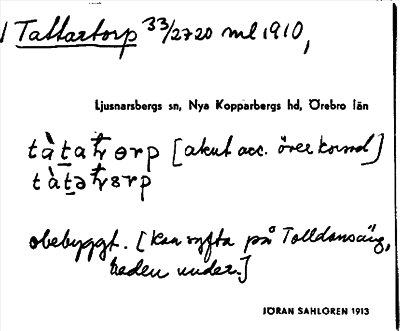 Tattartorp 33/2720 ml 1910,
Ljusnarsbergs sn, Nya Kopparbergs hd, Örebro län
[akut acc. över korsad]
obebyggt. [Kan syfta på Tolldansäng,
heden under.]
JÖRAN SAHLGREN 1913